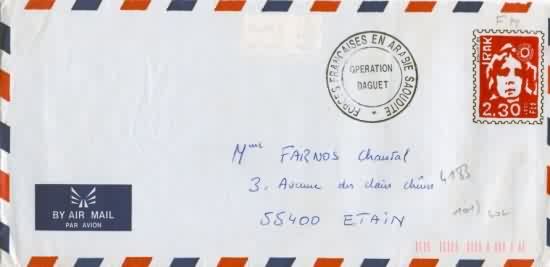 FORCES FRANÇAISES EN ARABIE SAOUDITE
OPERATION
DAGUET
IRAK
2.30
Mme FARNOS Chantal
3. Avenue des clairs chênes
55400 ETAIN
BY AIR MAIL
PAR AVION